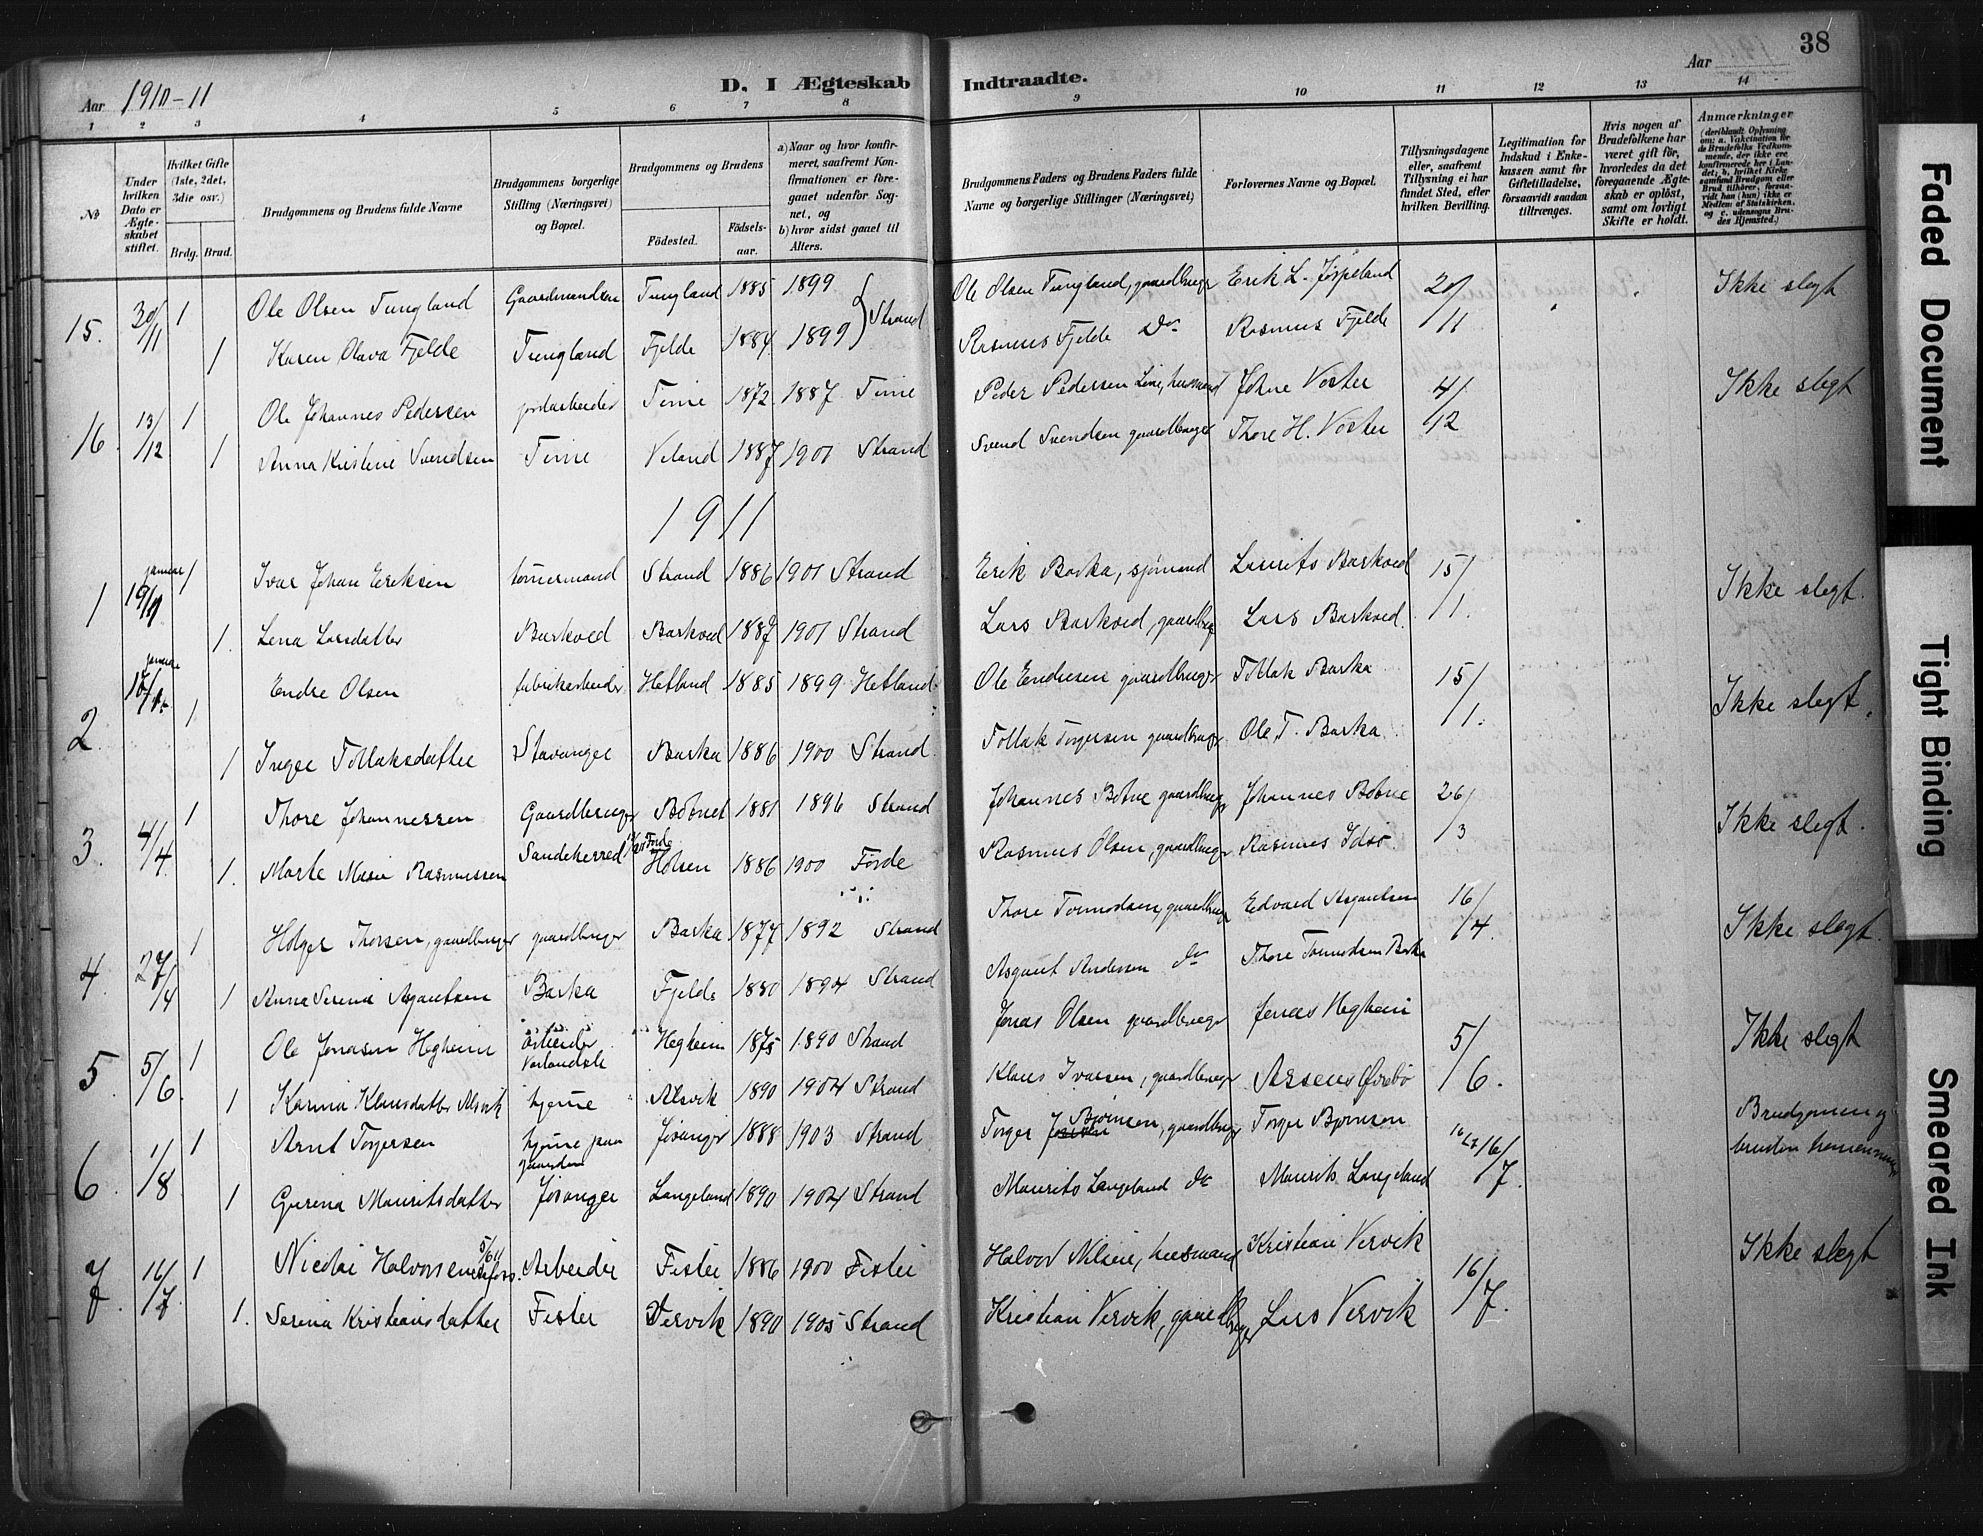 Aar 1910-11
D. I Ægteskab Indtraadte.
Aar
38
1 2 3 4 5 6 7 8 9 10 11 12 13 14
№
Under hvilken Dato er Ægteskabet stiftet.
Hvilket Gifte (1ste, 2det, 3die osv.)
Brdg. Brud.
Brudgommens og Brudens fulde Navne
Brudgommens borgerlige Stilling (Næringsvei) og Bopæl.
Brudgommens og Brudens
Födested.
Födselsaar.
a) Naar og hvor konfirmeret, saafremt Konfirmationen er foregaaet udenfor Sognet, og
b) hvor sidst gaaet til Alters.
Brudgommens Faders og Brudens Faders fulde Navne og borgerlige Stillinger (Næringsvei)
Forlovernes Navne og Bopæl.
Tillysningsdagene eller, saafremt Tillysning ei har fundet Sted, efter hvilken Bevilling.
Legitimation for Indskud i Enkekassen samt for Giftetilladelse, forsaavidt saadan tiltrænges.
Hvis nogen af Brudefolkene har været gift för, hvorledes da det foregaaende Ægteskab er oplöst, samt om lovligt Skifte er holdt.
Anmærkninger
(deriblandt Oplysning om: a. Vakcination for de Brudefolks Vedkommende, der ikke ere konfirmerede her i Landet; b. hvilket Kirkesamfund Brudgom eller Brud tilhörer, forsaavidt han (hun) ikke er Medlem af Statskirken, og c. udensogns Brudes Hjemsted.)
15. 30/11 1 Ole Olsen Tungland Gaardmandssøn Tungland 1885 1899 } Strand Ole Olsen Tungland, gaardbruger Erik L. Jøspeland 20/11 Ikke slegt
1 Karen Olava Fjelde Tungland Fjelde 1884 1899 Rasmus Fjelde Do Rasmus Fjelde
16. 13/12 1 Ole Johannes Pedersen jordarbeider Time 1872 1887 Time Peder Pedersen Line, husmand Johne Voster 4/12 Ikke slegt
1 Anna Kristine Svendsen Time Veland 1887 1901 Strand Svend Svendsen gaardbruger Thore H. Voster
1911
1 januar 19/ 1 Ivar Johan Eriksen tømmermand Strand 1886 1901 Strand Erik Barka, sjømand Laurits Barkved 15/1 Ikke slegt.
1. Lena Larsdatter Barkved Barkved 1887 1901 Strand Lars Barkved, gaardbrug Lars Barkved.
2. januar 1 Endre Olsen fabrikarbeider Hetland 1885 1899 Hetland Ole Endresen gaardbruger Tollak Barka 15/1. Ikke slegt.
1 Inger Tollaksdatter Stavanger Barka 1886 1900 Strand Tollak Torgersen gaardbruger Ole T. Barka
3. 4/4. 1 Thore Johannessen Gaardbruger 1881 1896 Strand Johannes Botne gaardbruger Johannes Botne 26/3 Ikke slegt.
1. Marte Marie Rasmussen Sandeherred Førde Holsen 1886 1900 Førde Rasmus Olsen, gaardbruger Rasmus Idsø.
4. 27/4 1 Holger Thorsen, gaardbruger gaardbruger Barka 1877 1892 Strand Thore Tormodsen, gaardbruger Edvard Asgautsen 16/4. Ikke slegt.
1 Anna Serina Asgautsen Barka Fjelde 1880 1894 Strand Asgaut Andersen do Thore Tormodsen Barka
5. 5/6. 1 Ole Jonasen Hegheim Arbeider Vorlandsli Hegheim 1875 1890 Strand Jonas Olsen gaardbruger Jonas Hegheim 5/6. Ikke slegt
1 Karina Klausdatter Alsvik hjeme Alsvik 1890 1904 Strand Klaus Ivarsen, gaardbruger
6. 1/8 1 Arnt Torgersen hjeme paa gaarden Jøsanger 1888 1903 Strand Torger Bjørnsen, gaardbruger Torger Bjørnson /7. Brudgomen og
1 Gurina Mauritsdatter Jøsanger Langeland 1890 1904 Strand Maurits Langeland do Maurits Langeland bruden
7. 16/7. 1 Nicolai Halvorsen Arbeider Fister 1886 1900 Fister Halvor Nilsen, husmand Kristian Vervik 16/7. Ikke slegt
1. Serina Kristiansdatter Fister Vervik 1890 1905 Strand Kristian Vervik, gaardbruger Lars Vervik
Faded Document
Tight Binding
Smeared Ink